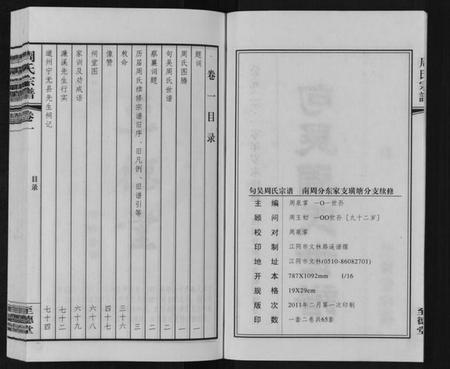 周氏宗譜
卷一
目录
至德堂
卷一目录
題词 一
周氏图腾 一
句吴周氏世谱 一
蔡襄词题 二
历届周氏续修宗谱旧序、旧凡例、旧引等 三
敕命 三十六
像赞 四十七
祠堂图 六十八
家训及劝戒语 六十九
濂溪先生行实 七十二
道州宁远县先生祠记 七十四
句吴周氏宗谱 南周分东家支璜塘分支续修
主编 周泉寧 一〇一世孙
顾问 周玉初 一〇〇世孙[九十二岁]
校对 周泉寧
印制 江阴市文林
地址 江阴市文林(0510-86082701)
开本 787X1092mm 1/16
规格 19X29cm
版次 2011年二月第一次印制
印数 一套二卷共65套
周氏宗譜
至德堂